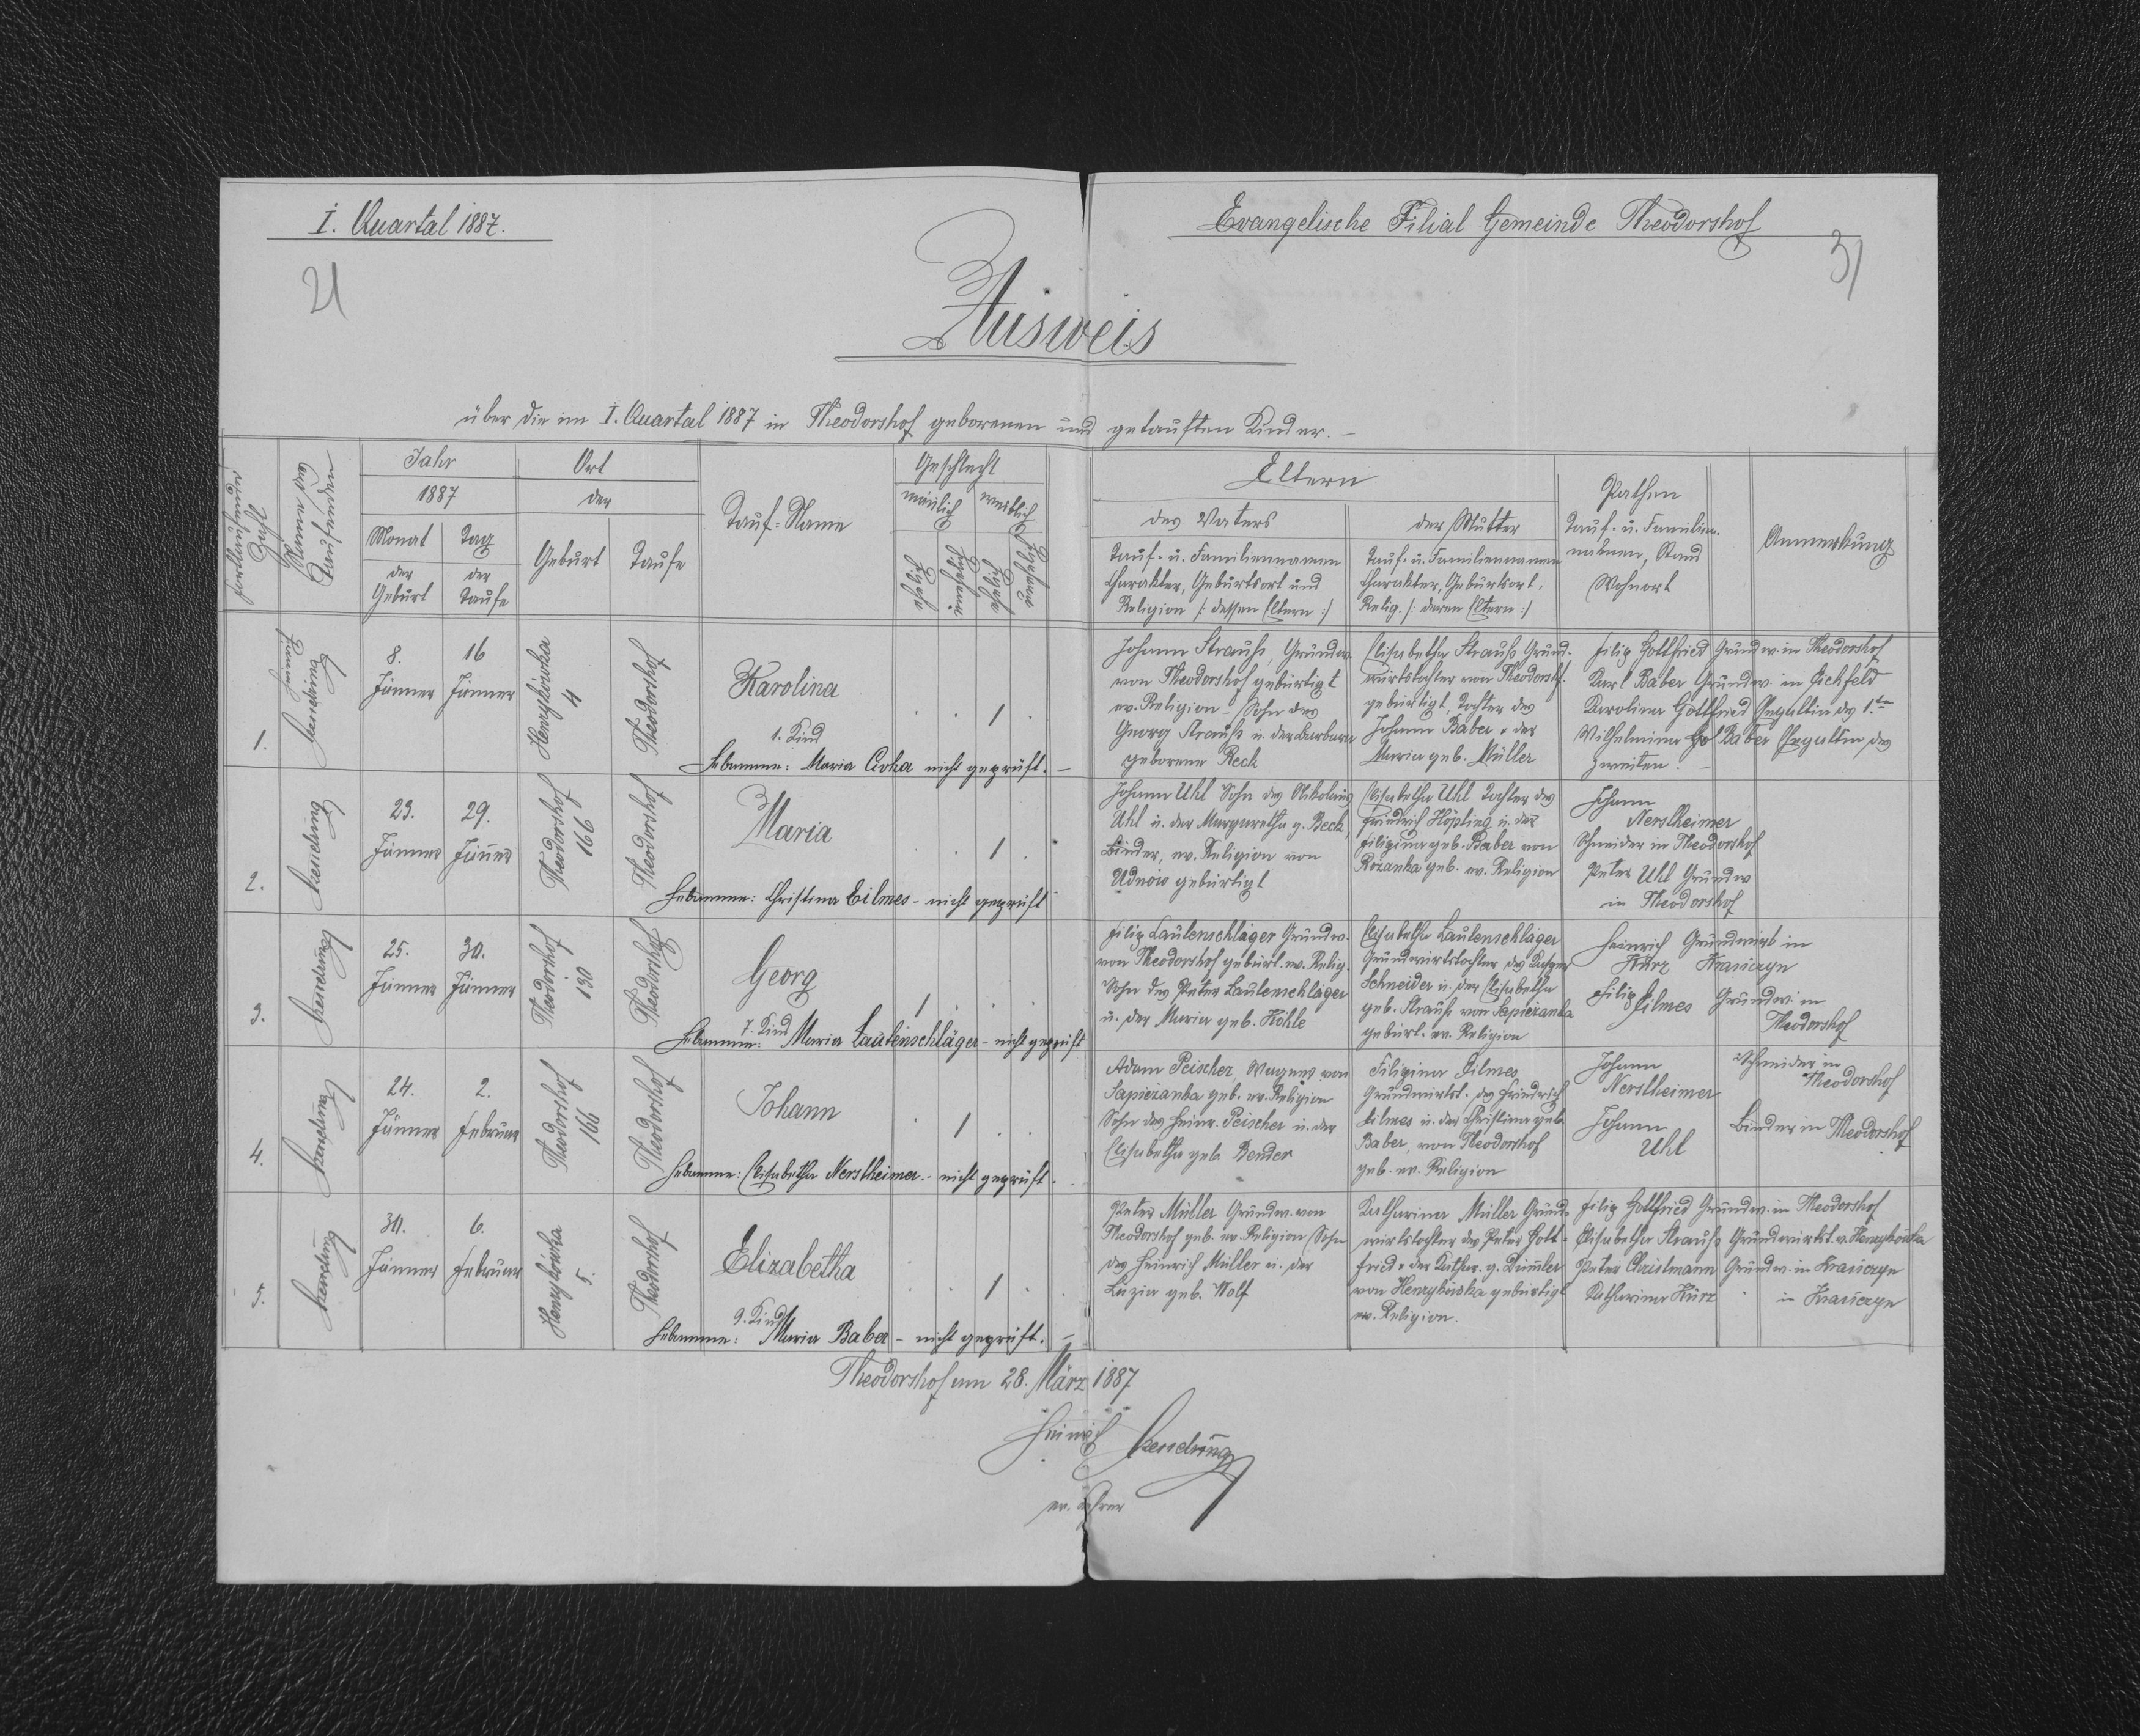 I. Quartal 1887.
Evangelische Filial Gemeinde Theodorshof
21
31
Ausweis
über die im I. Quartal 1887 in Theodorshof geborenen und getauften Kinder. –
fortlaufende Zahl
Name des Taufenden
Jahr
1887
Monat
der
Geburt
Tag
der
Taufe
Ort
der
Geburt
Taufe
Tauf-Name
Geschlecht
männlich
weiblich
ehelich
unehelich
ehelich
unehelich
Eltern
des Vaters
Tauf- u. Familiennamen
Charakter, Geburtsort und
Religion /: dessen Eltern :/
der Mutter
Tauf- u. Familiennamen
Charakter, Geburtsort,
Relig. /: deren Eltern :/
Pathen
Tauf- u. Familien-
nahmen, Stand
Wohnort
Anmerkung
1.
Heinrich
8.
Jänner
16
Jänner
Henrykówka
4
Theodorshof
Karolina
1. Kind
1
Hebamme: Maria nicht geprüft. –
Johann Strauß, Grundw.
von Theodorshof gebürtigt
ev. Religion – Sohn des
Georg Strauß u. der Barbara
geborene Beck
Elisabetha Strauß Grund-
wirtstochter von Theodorshf.
gebürtigt, Tochter des
Johann Baber u. der
Maria geb. Müller
Filip Gottfried Grundw. in Theodorshof
Karl Baber Grundw. in Eichfeld
Karolina Gottfried Gegattin des 1.ten
Wilhelmina Baber Ehegattin des
zweiten. –
2.
23.
Jänner
29.
Jänner
Theodorshof
166
Theodorshof
Maria
1
Hebamme: Christina Eilmes – nicht geprüft
Johann Uhl Sohn des Nikolaus
Uhl u. der Margaretha g. Beck,
Binder, ev. Religion von
Udnow gebürtigt
Elisabetha Uhl Tochter des
Friedrich Höpling u. der
Filipina geb. Baber von
Rozanka geb. ev. Religion
Johann
Nerstheimer
Schneider in Theodorshof
Peter Uhl Grundw
in Theodorshof
3.
25.
Jänner
30.
Jänner
Theodorshof
130
Theodorshof
Georg
7. Kind
1
Hebamme: Maria Lautenschläger – nicht geprüft
Filip Lautenschläger Grundw.
von Theodorshof gebürt. ev. Relig.
Sohn des Peter Lautenschläger
u. der Maria geb. Höhle
Elisabetha Lautenschläger
Grundwirtstochter des Kasper
Schneider u. der Elisabetha
geb. Strauß von Sapiezanka
gebürt. ev. Religion
Heinrich Grundwirt in
Kurz Krasiczyn
Filip Eilmes Grundw. in
Theodorshof
4.
24.
Jänner
2.
Februar
Theodorshof
166
Theodorshof
Johann
1
Hebamme: Elisabetha Nerstheimer. – nicht geprüft.
Adam Peischer, Wagner von
Sapiezanka geb. ev. Religion
Sohn des Heinr. Peischer u. der
Elisabetha geb. Bender
Filipina Eilmes
Grundwirtst. des Friedrich
Eilmes u. der Christina geb.
Baber, von Theodorshof
geb. ev. Religion
Johann Schneider in
Nerstheimer Theodorshof
Johann Binder in Theodorshof
Uhl
5.
30.
Jänner
6.
Februar
Henrykówka
5.
Theodorshof
Elizabetha
9. Kind
1
Hebamme: Maria Baber – nicht geprüft. –
Peter Müller Grundw. von
Theodorshof geb. ev. Religion Sohn
des Heinrich Müller u. der
Luzia geb. Wolf
Katharina Müller Grund-
wirtstochter des Peter Gott-
fried u. der Kathar. g.
von Henrykówka gebürtigt
ev. Religion.
Filip Gottfried Grundw. in Theodorshof
Elisabetha Strauß Grundwirtst. v. Henrykówka
Peter Christmann Grundw. in Krasiczyn
Katharina Kurz " in Krasiczyn
Theodorshof am 28. März 1887
Heinrich
ev. Lehrer